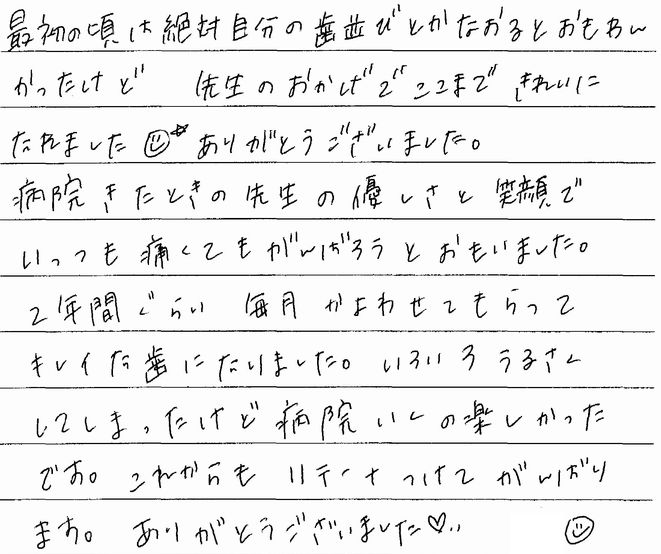 最初の頃は絶対自分の歯並びとかなおるとおもわん
かったけど 先生のおかげでここまできれいに
なれました☺☆ ありがとうございました。
病院きたときの先生の優しさと笑顔で
いっつも痛くてもがんばろうとおもいました。
2年間ぐらい 毎月かよわせてもらって
キレイな歯になりました。いろいろうるさく
してしまったけど病院いくの楽しかった
です。これからもリテーナつけてがんばり
ます。ありがとうございました♡.. ☺